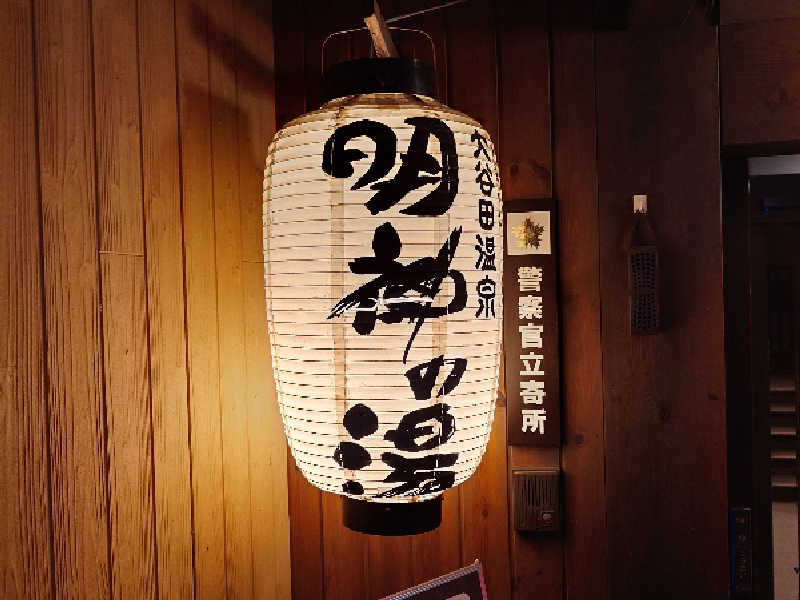 大谷田温泉
明神の湯
警察官立寄所